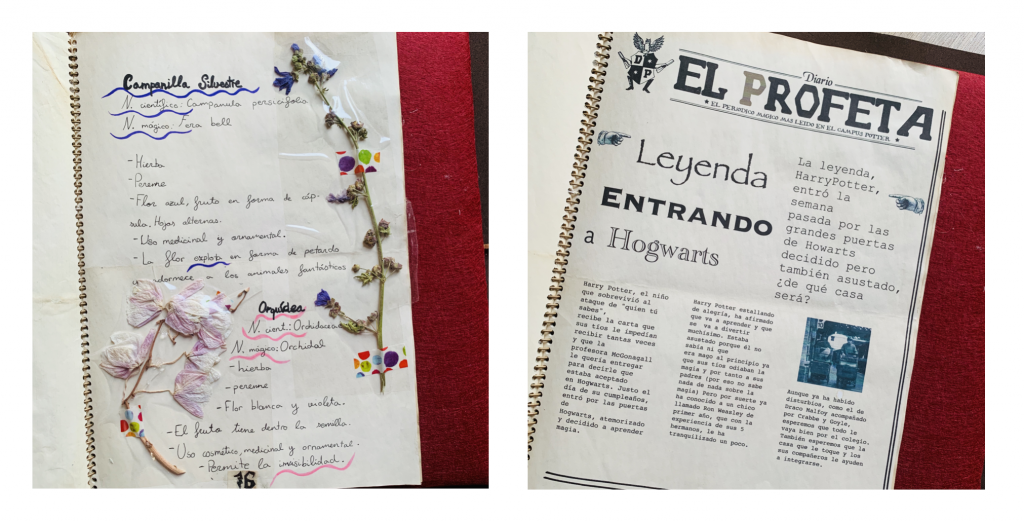 Campanilla Silvestre
N. científico: Campanula persicifolia
N. mágico: Fera bell
- Hierba
- Perenne
- Flor azul, fruto en forma de cáp-
sula. Hojas alternas.
- Uso medicinal y ornamental.
- La flor explota en forma de petardo
y adormece a los animales fantásticos
Orquídea
N. cient.: Orchidaceae
N. mágico: Orchidal
- hierba
- perenne
- Flor blanca y violeta.
- El fruto tiene dentro la semilla.
- Uso cosmético, medicinal y ornamental.
- Permite la invisibilidad.
16
DP
Diario
EL PROFETA
* EL PERIODICO MAGICO MAS LEIDO EN EL CAMPUS POTTER *
Leyenda
ENTRANDO
a Hogwarts
La leyenda,
HarryPotter,
entró la
semana
pasada por las
grandes puertas
de Howarts
decidido pero
también asustado,
¿de qué casa
será?
Harry Potter, el niño
que sobrevivió al
ataque de "quien tú
sabes",
recibe la carta que
sus tíos le impedían
recibir tantas veces
y que la
profesora McGonagall
le quería entregar
para decirle que
estaba aceptado
en Hogwarts. Justo el
día de su cumpleaños,
entró por las puertas
de
Hogwarts, atemorizado
y decidido a aprender
magia.
Harry Potter estallando
de alegría, ha afirmado
que va a aprender y que
se va a divertir
muchísimo. Estaba
asustado porque él no
sabía ni que
era mago al principio ya
que sus tíos odiaban la
magia y por tanto a sus
padres (por eso no sabe
nada de nada sobre la
magia) Pero por suerte ya
ha conocido a un chico
llamado Ron Weasley de
primer año, que con la
experiencia de sus 5
hermanos, le ha
tranquilizado un poco.
Aunque ya ha habido
disturbios, como el de
Draco Malfoy acompañado
por Crabbe y Goyle,
esperemos que todo le
vaya bien por el colegio.
También esperemos que la
casa que le toque y los
sus compañeros le ayuden
a integrarse.